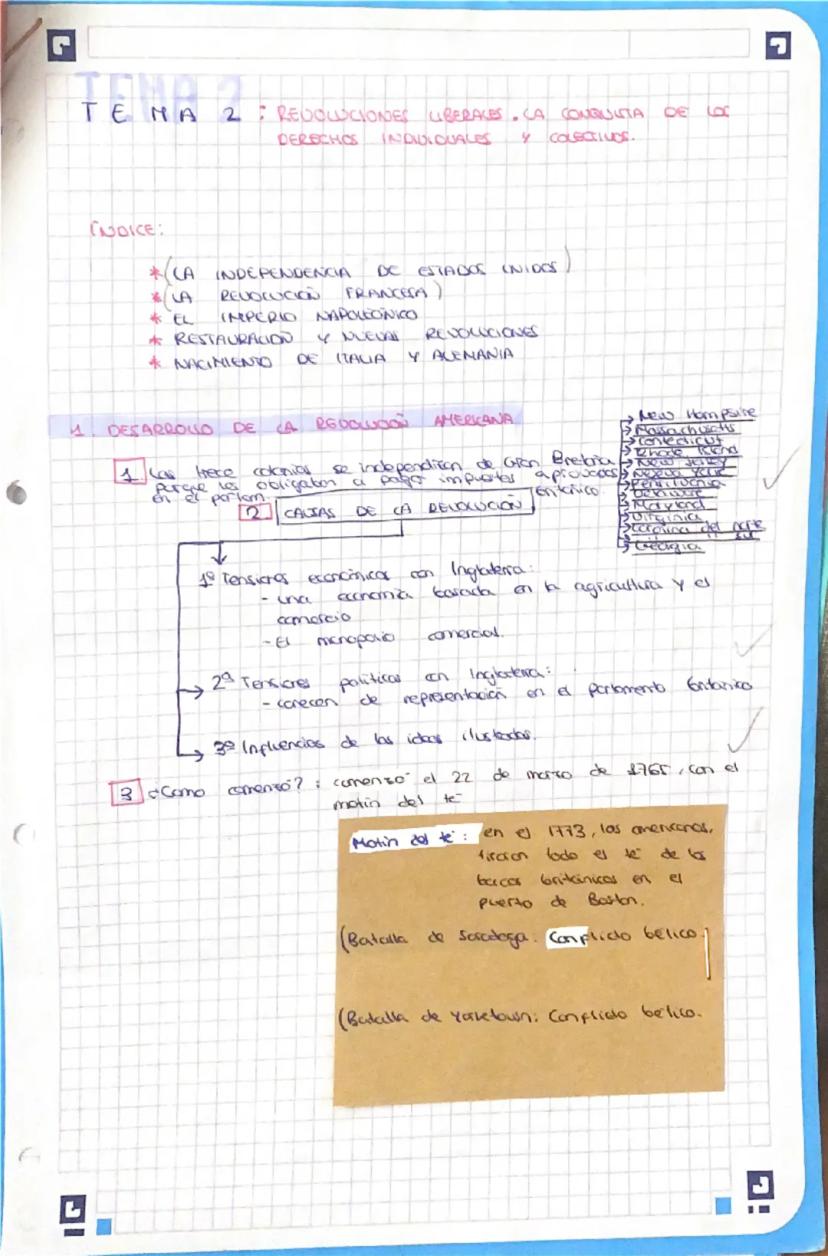 TEMA 2
TEMA 2: REVOLUCIONES LIBERALES. LA CONQUISTA DE LOS
DERECHOS INDIVIDUALES Y COLECTIVOS.
ÍNDICE:
* (LA INDEPENDENCIA DE ESTADOS UNIDOS)
* (LA REVOLUCIÓN FRANCESA)
* EL IMPERIO NAPOLEÓNICO
* RESTAURACIÓN Y NUEVAS REVOLUCIONES
* NACIMIENTO DE ITALIA Y ALEMANIA
1. DESARROLLO DE LA REVOLUCIÓN AMERICANA
1 Las trece colonias se independizan de Gran Bretaña
porque les obligaban a pagar impuestos aprobados
en el parlam. británico.
→ New Hampsire
→ Massachusetts
→ Conecticut
→ Rhode Island
→ New Jersey
→ Nueva York
→ Pensilvania
→ Delaware
→ Maryland
→ Virginia
→ Carolina del norte
sur
→ Georgia
2 CAUSAS DE LA REVOLUCIÓN
1º Tensiones económicas con Inglaterra:
- una economía basada en la agricultura y el
comercio
- El monopolio comercial.
→ 2º Tensiones políticas con Inglaterra:
- carecen de representación en el parlamento británico
→ 3º Influencias de las ideas ilustradas.
3 ¿Como comenzó?: comenzó el 22 de marzo de 1765, con el
motín del té
Motín del té: en el 1773, los americanos,
tiraron todo el té de los
barcos británicos en el
puerto de Boston.
(Batalla de Saratoga. Conflicto bélico.
(Batalla de Yorktown: Conflicto bélico.